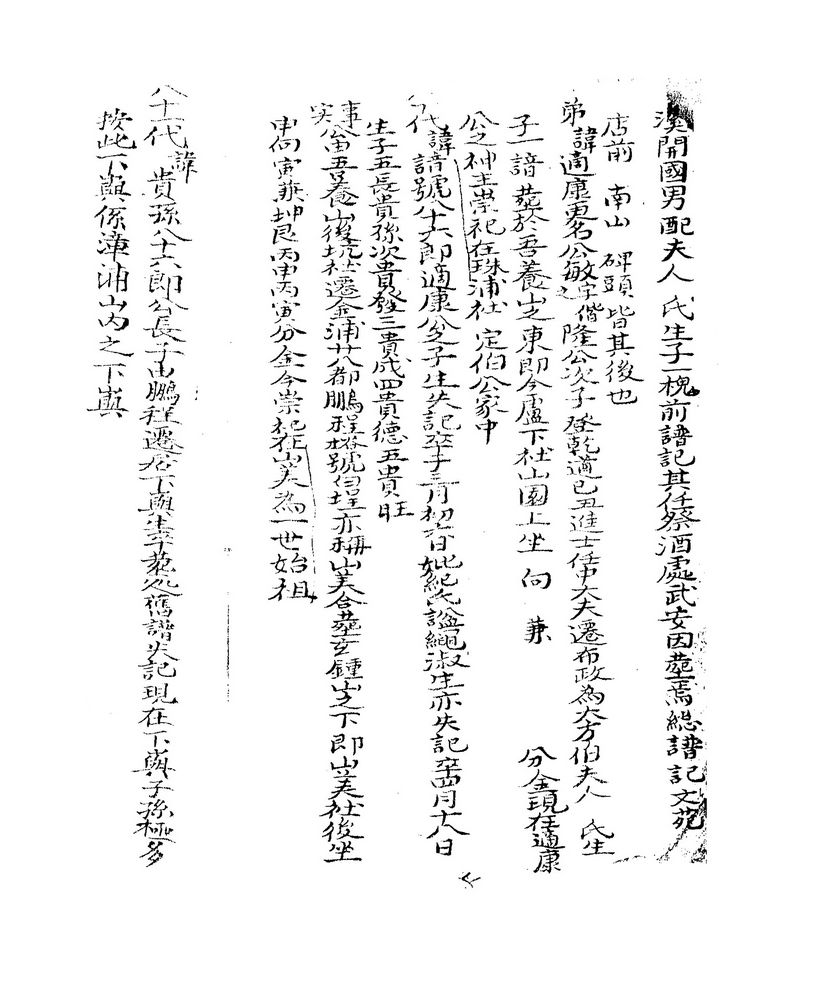 漢開國男配夫人 氏生子一槐前譜記其任祭酒處武安因塟焉總譜記文苑
店前 南山 碑頭皆其後也
弟諱適康更名公敏字偕之隆公次子登乾道己丑進士任中大夫遷布政為大方伯夫人 氏生
子一諳塟於吾養山之東即今盧下社山園上坐 向 兼 分金現在適康
公之神主崇祀在珠浦社 定伯公家中
代諱諳號八十六郎適康公之子生失記卒于三月初 日妣紀氏諡繩淑生亦失記卒四月十八日
生子五長貴孫次貴發三貴成四貴德五貴旺
事實公由五養山後坑社遷金浦廿八都鵬程 號 埕亦稱山美合塟玄鍾山之下即山美社後坐
申向寅兼坤艮丙申丙寅分金今崇祀在山美為一世始祖
八十一代諱貴孫八十六郎公長子由鵬程遷居下 生卒塟處舊譜失記現在下 子孫極多
按此下 係漳浦山內之下